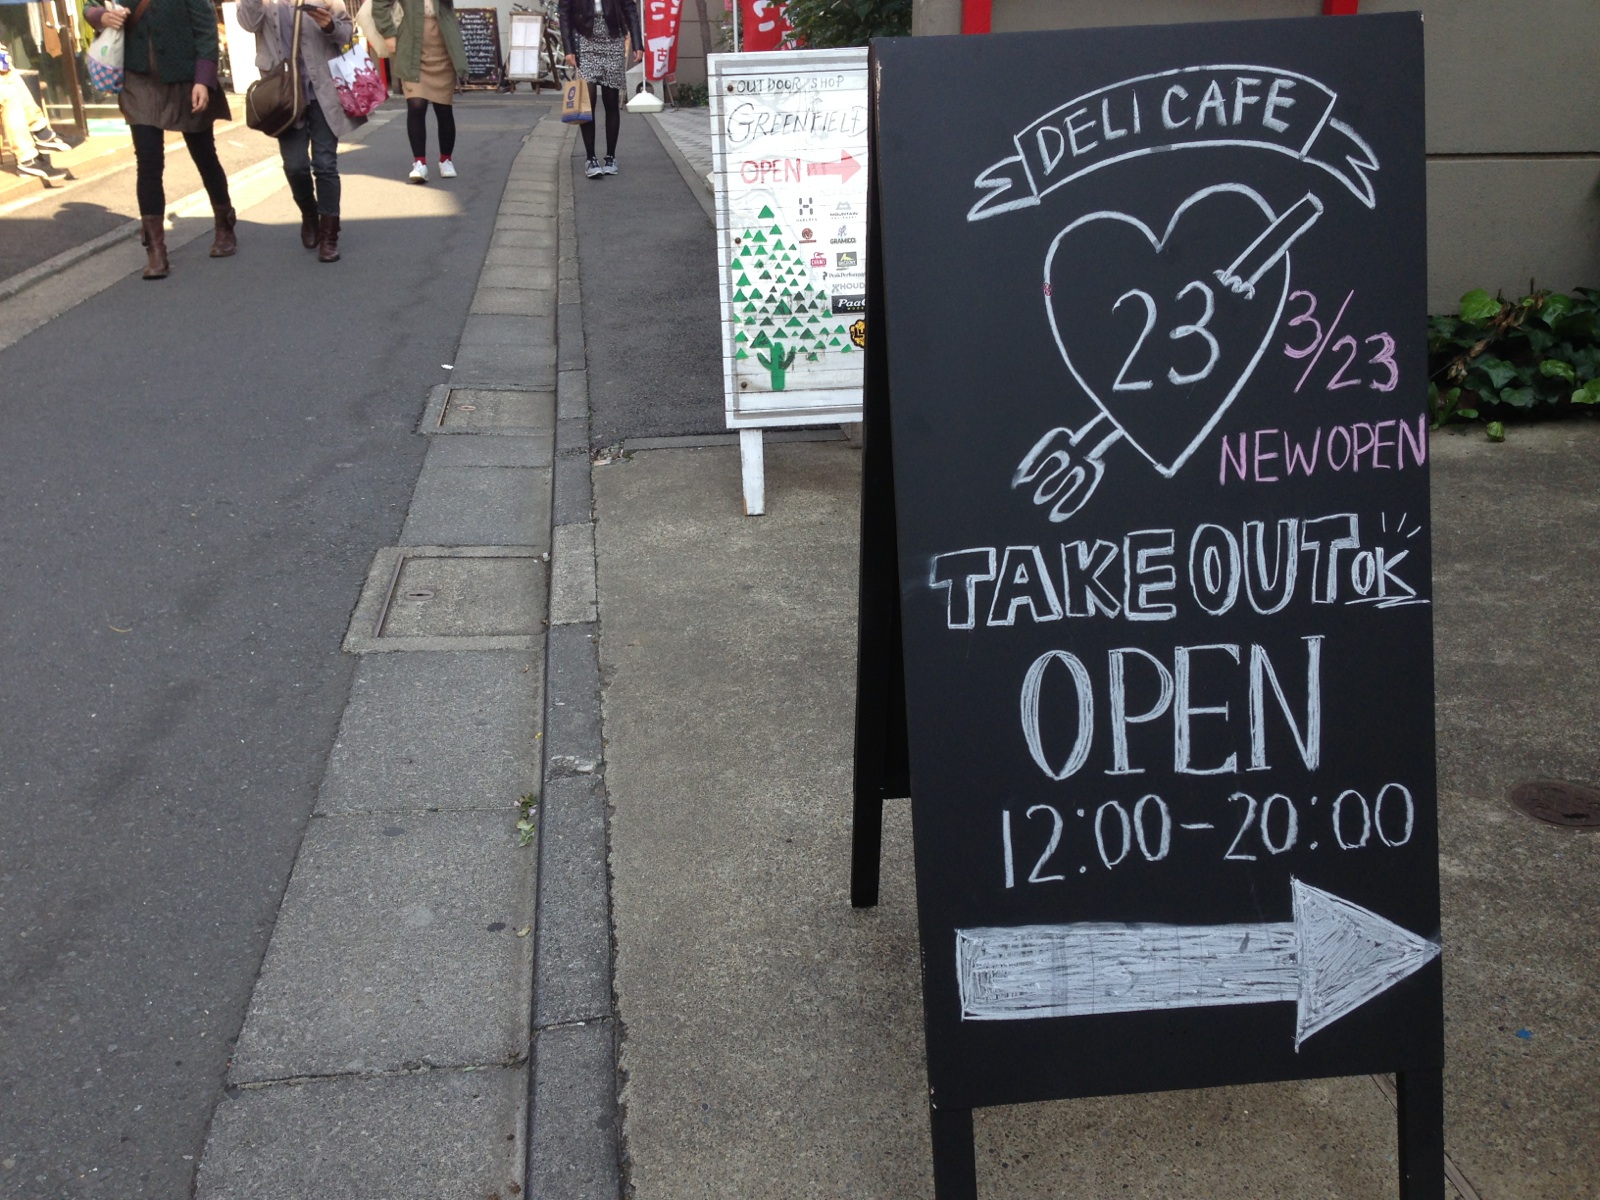 DELI CAFE
23
3/23
NEW OPEN
TAKE OUT OK
OPEN
12:00-20:00
OUTDOOR SHOP
GREENFIELD
OPEN
GRAMICCI
Peak Performance
HOUD
Paa